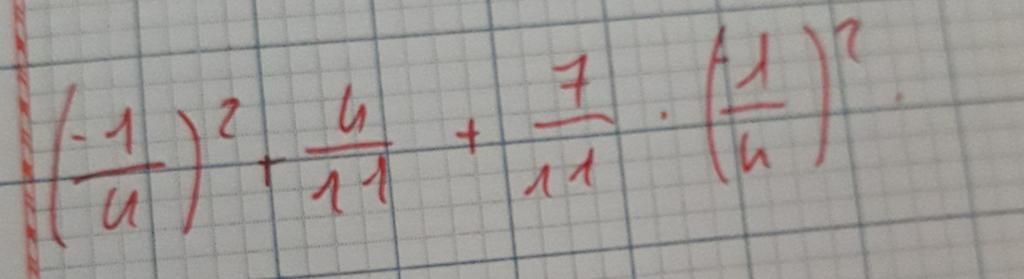 (-1/4)² + 4/11 + 7/11 · (-1/4)² .